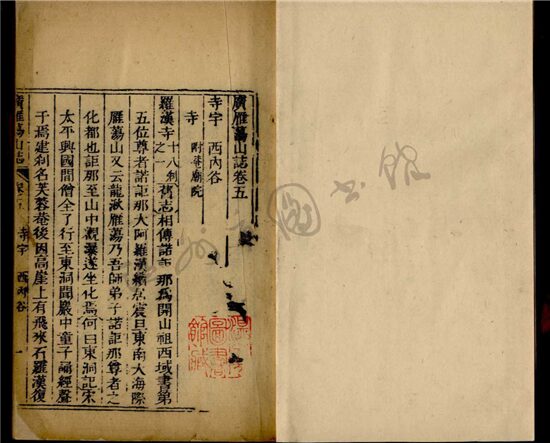 廣雁蕩山誌卷五
寺宇 西內谷
寺 附菴廟院
羅漢寺 十八剎之一 舊志相傳諾詎那為開山祖西域書第
五位尊者諾詎那大阿羅漢居震旦東南大海際
雁蕩山又云龍湫雁蕩乃吾師弟子諾詎那尊者之
化都也詎那至山中觀瀑遂坐化焉何白東洞記宋
太平興國間僧全了行至東洞聞巖中童子誦經聲
于焉建剎名芙蓉菴後因高崖上有飛來石羅漢復
廣雁蕩山誌 寺宇 西內谷 一
州圖書館
圖書館藏